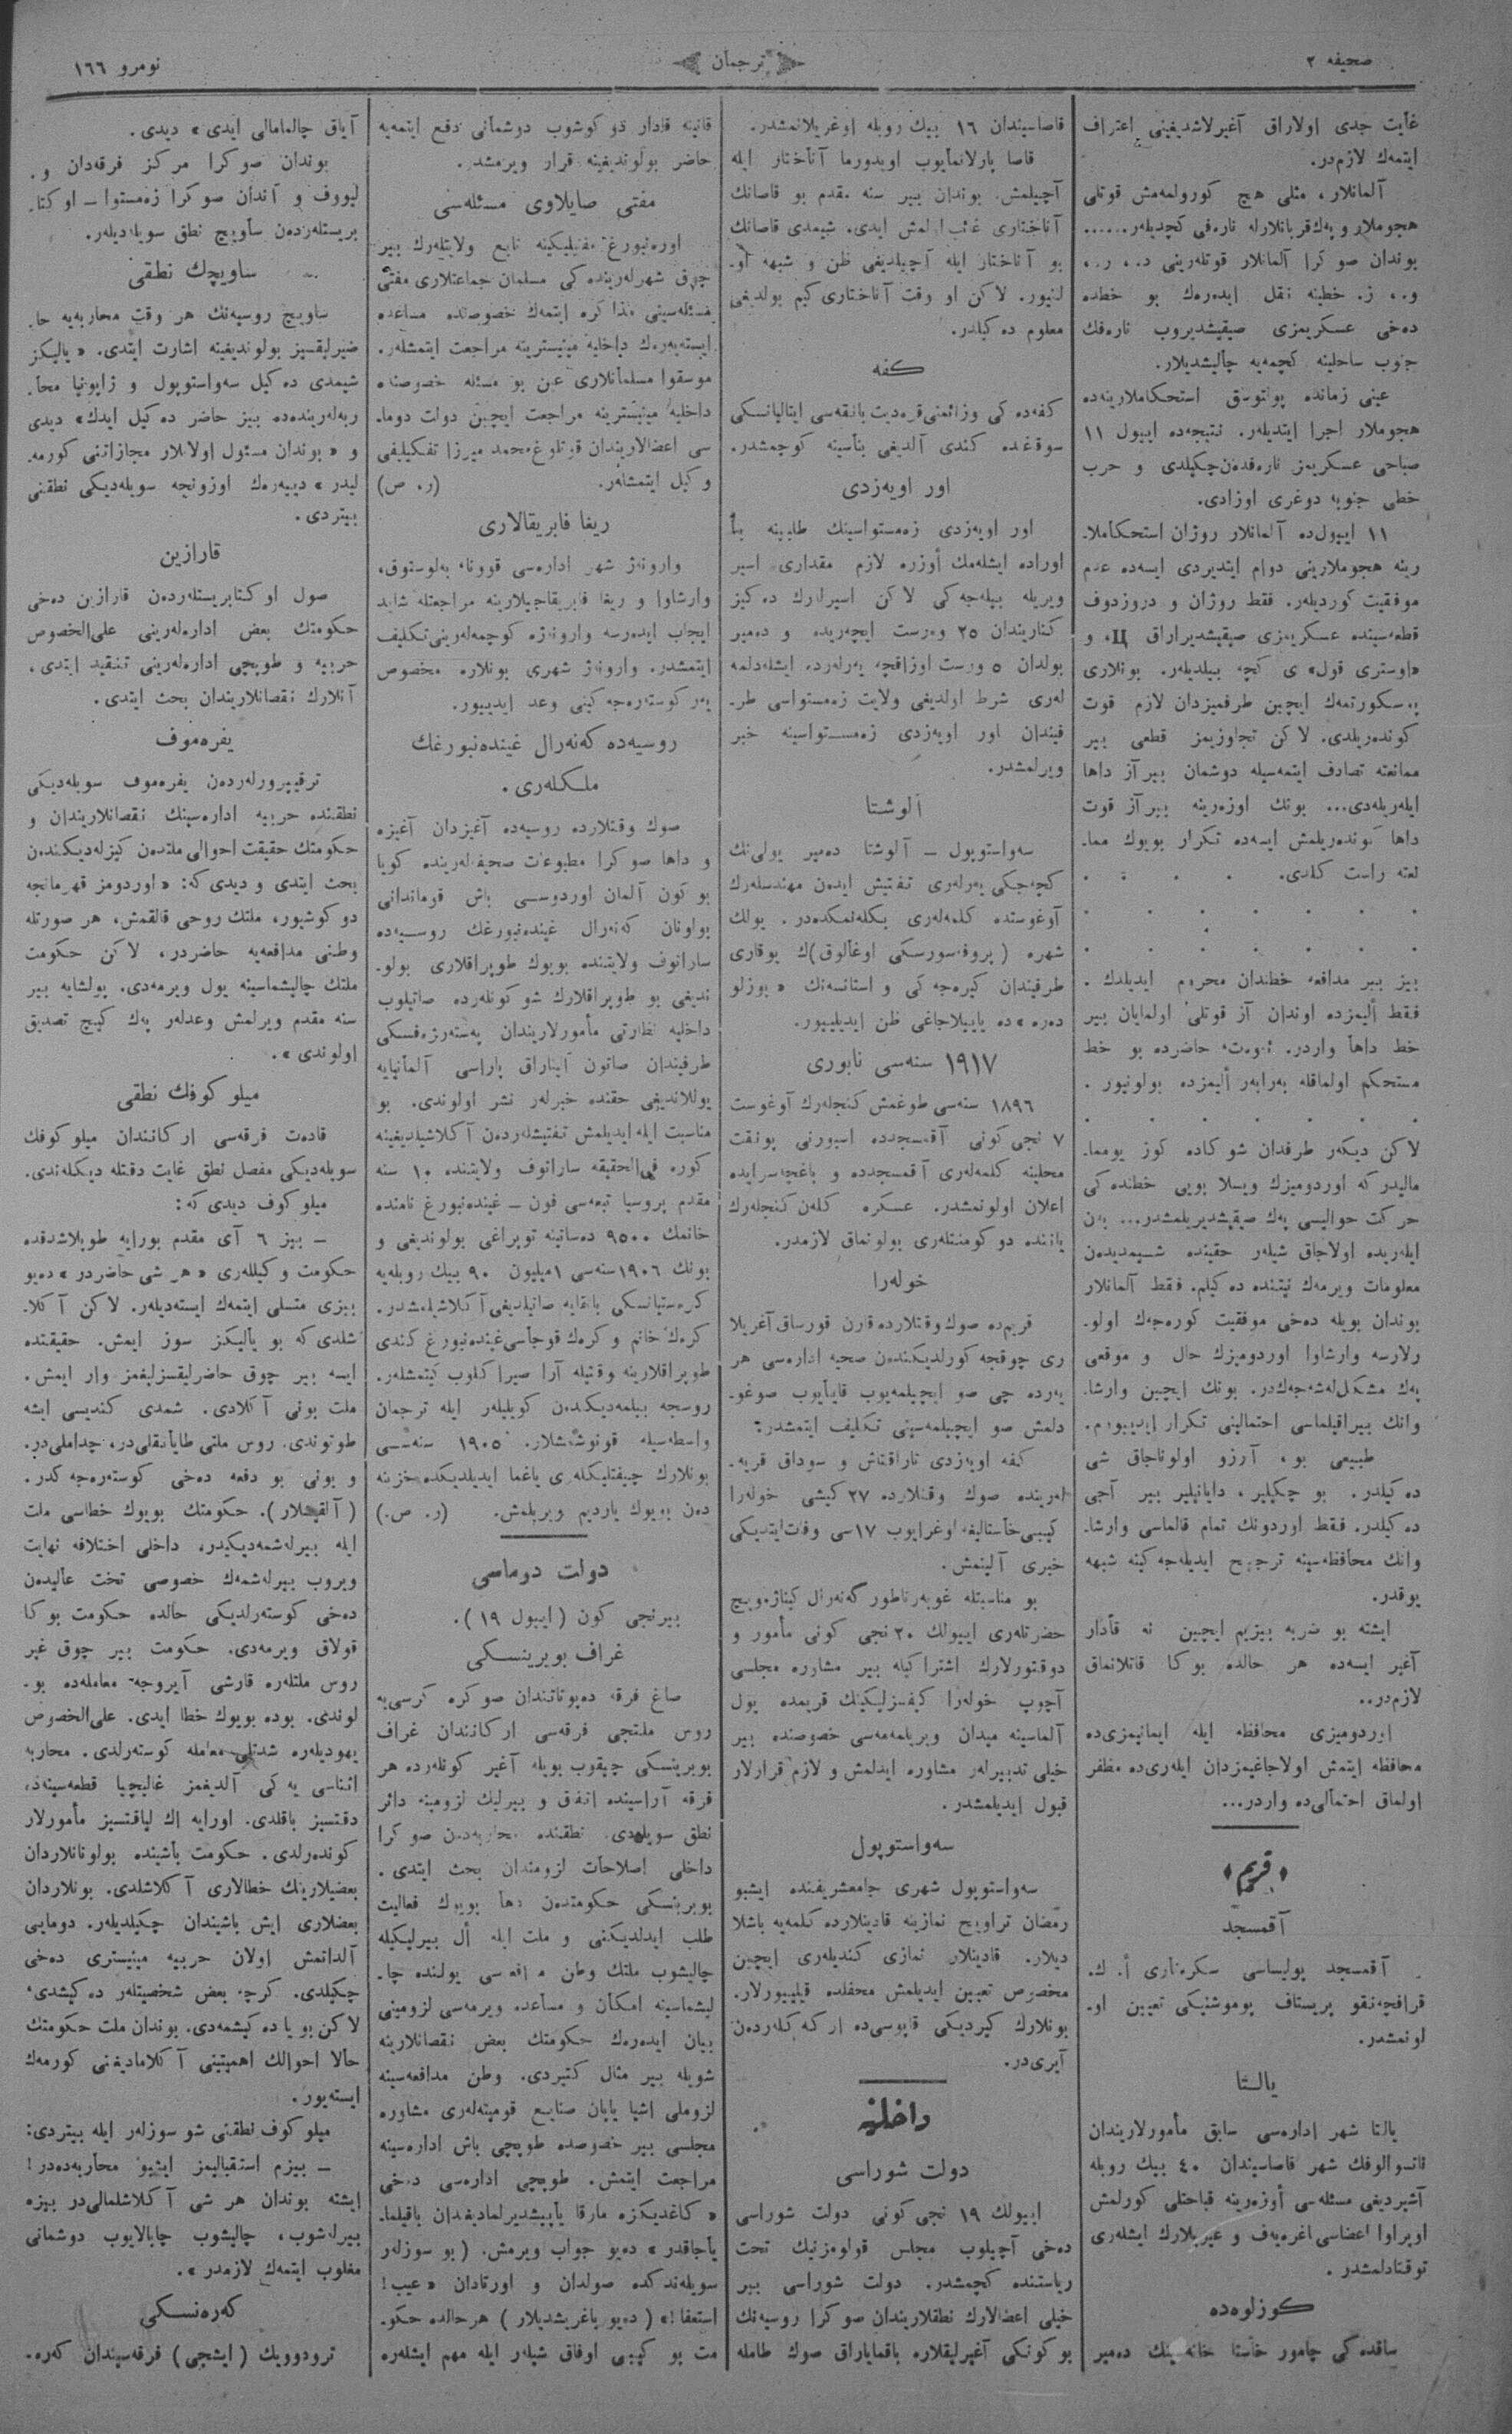 صحیفه ۲
ترجمان
نومرو ۱۶۶
غأیت جدی اولاراق آغیرلاشدیغینی اعتراف
ایتمه‌ك لازم‌در.
آلمانلار، مثلی هیچ كورولمه‌مش قوتلی
هجوملار و په‌ك قربانلارله ناره‌فی كچدیله‌ر......
بوندان صوكرا آلمانلار قوتله‌رینی د.، ر.،
و.، ز. خطینه نقل ایده‌ره‌ك بو خطده
ده‌خی عسكریمزی صیقیشدیروب ناره‌فك
جنوب ساحلینه كچمه‌یه چالیشدیلار.
عینی زمانده پولتوسق استحكاملارینه‌ده
هجوملار اجرا ایتدیله‌ر. نتیجه‌ده اییول ۱۱
صباحی عسكریمز ناره‌فده‌ن چكیلدی و حرب
خطی جنوبه دوغری اوزادی.
۱۱ اییول‌ده آلمانلار روژان استحكاملا-
رینه هجوملارینی دوام ایتدیردی ایسه‌ده عدم
موفقیت كوردیله‌ر. فقط روژان و دروزدوف
قطعه‌سینده عسكریمزی صیقیشدیراراق Ц، و
«اوستری قول» ی كچه بیلدیله‌ر. بونلاری
پوسكورتمه‌ك ایچین طرفمیزدان لازم قوت
كونده‌ریلدی. لاكن تجاوزیمز قطعی بیر
ممانعته تصادف ایتمه‌سیله دوشمان بیر آز داها
ایله‌ریله‌دی... بونك اوزه‌رینه بیر آز قوت
داها كونده‌ریلمش ایسه‌ده تكرار بویوك مما-
نعته راست كلدی. . . . .
. . . . . .
. . . . . .
بیز بیر مدافعه خطندان محروم ایدیلدك.
فقط ألیمزده اوندان آز قوتلی اولمایان بیر
خط داهأ واردر. حاضرده بو خط
مستحكم اولماقله به‌رابه‌ر ألیمزده بولونیور.
. . . . . .
لاكن دیكه‌ر طرفدان شوكاده كوز یومما-
مالیدر كه اوردومیزك ویسلا بویی خطنده‌كی
حركت حوالیسی په‌ك صیقیشدیریلمشدر... به‌ن
ایله‌ریده اولاجاق شیله‌ر حقینده شیمدیده‌ن
معلومات ویرمه‌ك نیتنده ده‌كیلم. فقط آلمانلار
بوندان بویله ده‌خی موفقیت كوره‌جه‌ك اولو-
رلارسه وارشاوا اوردومیزك حال و موقعی
په‌ك مشكل‌له‌شه‌جه‌كدر. بونك ایچین وارشا-
وانك بیراقیلماسی احتمالینی تكرار ایدییورم.
طبیعی بو، آرزو اولوناجاق شی
ده‌كیلدر. بو چكیلیر، دایانیلیر بیر آجی
ده‌كیلدر. فقط اوردونك تمام قالماسی وارشا-
وانك محافظه‌سینه ترجیح ایدیله‌جه‌كینه شبهه
یوقدر.
ایشته بو ضربه بیزیم ایچین نه قأدار
آغیر ایسه‌ده هر حالده بوكا قاتلانماق
لازم‌در..
اوردومیزی محافظه ایله ایمانیمزی‌ده
محافظه ایتمش اولاجاغیمزدان ایله‌ری‌ده مظفر
اولماق احتمألی‌ده واردر...
﴿قریم﴾
آقمسجد
آقمسجد پولیساسی سكره‌تاری أ. ك.
قرافچه‌نقو پریستاف پوموشنیكی تعیین او-
لونمشدر.
یالــتا
یالتا شهر إداره‌سی سابق مأمورلاریندان
شهر قاصاسیندان ۴۰ بیك روبله
آشیردیغی مسئله‌سی أوزه‌رینه قباحتلی كورلمش
اوپراوا اعضاسی و غیریلارك ایشله‌ری
توقتادلمشدر.
كوزلوه‌ده
ساقده‌كی چامور خأستا خانه‌سینك ده‌میر
قاصاسیندان ۱۶ بیك روبله اوغریلانمشدر.
قاصا پارلانمأیوب اویدورما آنأختار ایله
آچیلمش. بوندان بیر سنه مقدم بو قاصانك
آناختاری غائب اولمش ایدی. شیمدی قاصانك
بو آناختار ایله آچیلدیغی ظن و شبهه او-
لنیور. لاكن او وقت آناختاری كیم بولدیغی
معلوم ده‌كیلدر.
كفه
كفه‌ده‌كی وزائمنی قره‌دیت بانقه‌سی ایتالیانسكی
سوقغده كندی آلدیغی بنأسینه كوچمشدر.
اور اویه‌زدی
اور اویه‌زدی زه‌مستواسینك طلبینه بنأ
اوراده ایشله‌مك أوزره لازم مقداری اسیر
ویریله بیله‌جه‌كی لاكن اسیرلرك ده‌كیز
كناریندان ۲۵ وه‌رست ایچه‌ریده و ده‌میر
یولدان ۵ ورست اوزاقچه یه‌رله‌رده ایشله‌دلمه
له‌ری شرط اولدیغی ولایت زه‌مستواسی طر-
فیندان اور اویه‌زدی زه‌مســتواسینه خبر
ویرلمشدر.
آلوشــتا
سه‌واستوپول — آلوشتا ده‌میر یولی‌نك
كچه‌جكی یه‌رله‌ری تفتیش ایده‌ن مهندسله‌رك
آوغوستده كلمه‌له‌ری بكله‌نمكده‌در. یولك
شهره (پروفه‌سورسكی اوغألوق)ك یوقاری
طرفیندان كیره‌جه‌كی و استانسه‌نك «بوزلو
ده‌ره»ده یاپیلاجاغی ظن ایدیلییور.
۱۹۱۷ سنه‌سی نابوری
۱۸۹۶ سنه‌سی طوغمش كنجله‌رك آوغوست
۷ نجی كونی آقمسجدده اسبورنی پونقت
محلینه كلمه‌له‌ری آقمسجدده و باغچه‌سرایده
اعلان اولونمشدر. عسكره كله‌ن كنجله‌رك
یاننده دوكومنتله‌ری بولونماق لازمدر.
خوله‌را
قریم‌ده صوك وقتلارده قارن قورساق آغریلا
ری چوقجه كورلدیكنده‌ن صحیه اداره‌سی هر
یه‌رده چی صو ایچیلمه‌یوب قاینأیوب صوغو-
دلمش صو ایچیلمه‌سینی تكلیف ایتمشدر:
كفه اویه‌زدی تاراقتاش و سوداق قریه-
له‌رینده صوك وقتلارده ۲۷ كیشی خوله‌را
كیبی خأستالیغه اوغرایوب ۱۷سی وفات‌ایتدیكی
خبری آلینمش.
بو مناسبتله غوبه‌رناطور گه‌نه‌رال كنیاژه‌ویچ
حضرتله‌ری اییولك ۲۰ نجی كونی مأمور و
دوقتورلارك اشتراكیله بیر مشاوره مجلسی
آچوپ خوله‌را كیفسزلیكینك قریمده یول
آلماسینه میدان ویریلمه‌مه‌سی خصوصنده بیر
خیلی تدبیرله‌ر مشاوره ایدلمش و لازم قرارلار
قبول ایدیلمشدر.
سه‌واستوپول
سه‌واستوپول شهری جامعشریفنده ایشبو
رمضان تراویح نمازینه قادینلارده كلمه‌یه باشلا
دیلار. قادینلار نمازی كندیله‌ری ایچین
مخصوص تعیین ایدیلمش محفلده قیلییورلار.
بونلارك كیردیكی قاپوسی‌ده اركه‌كله‌رده‌ن
آیری‌در.
داخلیه
دولت شوراسی
اییولك ۱۹ نجی كونی دولت شوراسی
ده‌خی آچیلوب مجلس قولومزنیك تحت
ریاستنده كچمشدر. دولت شوراسی بیر
خیلی اعضالارك نطقلاریندان صوكرا روسیه‌نك
بوكونكی آغیرلیقلاره باقمایاراق صوك طامله
قانینه قادار دوكوشوب دوشمأنی دفع ایتمه‌یه
حاضر بولوندیغینه قرار ویرمشدر.
مفتی صایلاوی مسئله‌سی
اوره‌نبورغ مفتیلیكینه تابع ولایتله‌رك بیر
چوق شهرله‌رینده‌كی مسلمان جماعتلاری مفتی
مسئله‌سینی مذاكره ایتمه‌ك خصوصنده مساعده
ایسته‌یه‌ره‌ك داخلیه مینیسترینه مراجعت ایتمشله‌ر.
موسقوا مسلمأنلاری عین بو مسئله خصوصنده
داخلیه مینیسترینه مراجعت ایچین دولت دوما-
سی اعضالاریندان قوتلوغ‌محمد میرزا تفكیلیفی
وكیل ایتمشله‌ر. (ر. ص)
ریغا فابریقالاری
وارونه‌ژ شهر اداره‌سی قوونا، به‌لوستوق،
وارشاوا و ریغا فابریقاجیلارینه مراجعتله شاید
ایجاب ایده‌رسه وارونه‌ژه كوچمه‌له‌رینی تكلیف
ایتمشدر. وارونه‌ژ شهری بونلاره مخصوص
یه‌ر كوسته‌ره‌جه‌كینی وعد ایدییور.
روسیه‌ده كه‌نه‌رال غینده‌نبورغك
ملـكله‌ری.
صوك وقتلارده روسیه‌ده آغیزدان آغیزه
و داها صوكرا مطبوعات صحیفه‌له‌رینده كویا
بو كون آلمان اوردوســی باش قوماندانی
بولونان كه‌نه‌رال غینده‌نبورغك روســیه‌ده
ساراتوف ولایتنده بویوك طوپراقلاری بولو-
ندیغی بو طوپراقلارك شو كونله‌رده صاتیلوب
داخلیه نظارتی مأمورلاریندان
طرفیندان صاتون آلیناراق پاراسی آلمأنیایه
یوللاندیغی حقنده خبرله‌ر نشر اولوندی. بو
مناسبت ایله ایدیلمش تفتیشله‌رده‌ن آكلاشیلدیغینه
كوره فی‌الحقیقه ساراتوف ولایتنده ۱۰ سنه
مقدم پروسیا تبعه‌سی فون — غینده‌نبورغ نامنده
خانمك ۹۵۰۰ ده‌ساتینه توپراغی بولوندیغی و
بونك ۱۹۰۶سنه‌سی ۱میلیون ۹۰ بیك روبله‌یه
كره‌ستیانسكی بانقایه صاتیلدیغی آكلاشلمشدر.
كره‌ك خانم و كره‌ك قوجاسی غینده‌نبورغ كندی
طوپراقلارینه وقتیله آرا صیرا كلوب كیتمشله‌ر.
روسجه بیلمه‌دیكنده‌ن كویلیله‌ر ایله ترجمان
واسطه‌سیله قونوشمشلار. ۱۹۰۵ سنه‌ســی
بونلارك چیفتلیكله‌ری یاغما ایدیلدیكده خزینه
ده‌ن بویوك یاردیم ویریلمش. (ر. ص.)
دولت دوماسی
بیرنجی كون (اییول ۱۹).
غراف بوبرینســكی
صاغ فرقه ده‌پوتاتندان صوكره كرسی‌یه
روس ملتجی فرقه‌سی اركانندان غراف
بوبرینسكی چیقوب بویله آغیر كونله‌رده هر
فرقه آراسینده إتفاق و بیرلیك لزومینه دائر
نطق سویله‌دی. نطقنده محاربه‌ده‌ن صوكرا
داخلی اصلاحات لزومندان بحث ایتدی.
بوبرینسكی حكومتده‌ن دها بویوك فعالیت
طلب ایدلدیكنی و ملت ایله أل بیرلیكیله
چالیشوب ملتك وطن مدافعه‌سی یولنده چا-
لیشماسینه امكأن و مسأعده ویرمه‌سی لزومینی
بیان ایده‌ره‌ك حكومتك بعض نقصانلارینه
شویله بیر مثال كتیردی. وطن مدافعه‌سینه
لزوملی اشیا یاپان صنایع قومیته‌له‌ری مشاوره
مجلسی بیر خصوصده طوپچی باش اداره‌سینه
مراجعت ایتمش. طوپچی اداره‌سی ده‌خی
«كاغدیكزه مارقا یأپیشدیرلمادیغندان باقیلما-
یأجاقدر» ده‌یو جواب ویرمش. (بو سوزله‌ر
سویله‌ندكده صولدان و اورتادان «عیب!
استعفا!» (ده‌یو باغریشدیلار) هر حالده حكو-
مت بو كیبی اوفاق شیله‌ر ایله مهم ایشله‌ره
آیاق چالمامالی ایدی» دیدی.
بوندان صوكرا مركز فرقه‌دان و.
لیووف و آندان صوكرا زه‌مستوا — اوكتا-
بریستله‌رده‌ن سأویچ نطق سویله‌دیله‌ر.
ساویچك نطقی
ساویچ روسیه‌نك هر وقت محاربه‌یه حا-
ضیرلیقسیز بولوندیغینه اشارت ایتدی. «یالیكز
شیمدی ده‌كیل سه‌واستوپول و ژاپونیا محأ-
ربه‌له‌رینده‌ده بیز حاضر ده‌كیل ایدك» دیدی
و «بوندان مسئول اولانلار مجازاتنی كورمه-
لیدر» دییه‌ره‌ك اوزونجه سویله‌دیكی نطقنی
بیتردی.
قارازین
صول اوكتابریستله‌رده‌ن قارازین ده‌خی
حكومتك بعض اداره‌له‌رینی علی‌الخصوص
حربیه و طوپچی اداره‌له‌رینی تنقید إیتدی،
آنلارك نقصانلاریندان بحث ایتدی.
یفره‌موف
ترقیپرورله‌رده‌ن یفره‌موف سویله‌دیكی
نطقنده حربیه اداره‌سینك نقصانلاریندان و
حكومتك حقیقت احوالی ملتدن كیزله‌دیكنده‌ن
بحث ایتدی و دیدی كه: «اوردومز قهرمانجه
دوكوشیور، ملتك روحی قالقمش، هر صورتله
وطنی مدافعه‌یه حاضردر، لاكن حكومت
ملتك چالیشماسینه یول ویرمه‌دی. پولشایه بیر
سنه مقدم ویرلمش وعدله‌ر په‌ك كیچ تصدیق
اولوندی».
میلوكوفك نطقی
قاده‌ت فرقه‌سی اركانندان میلوكوفك
سویله‌دیكی مفصل نطق غایت دقتله دیكله‌ندی.
میلوكوف دیدی كه:
— بیز ۶ آی مقدم بورایه طوپلاشدقده
حكومت وكیلله‌ری «هر شی حاضردر» ده‌یو
بیزی متسلی ایتمه‌ك ایسته‌دیله‌ر. لاكن آكلا-
شلدی كه بو یالیكز سوز ایمش. حقیقتده
ایسه بیر چوق حاضرلیقسزلیغمز وار ایمش.
ملت بونی آكلادی. شمدی كندیسی ایشه
طوتوندی. روس ملتی طایأنقلی‌در، چداملی‌در.
و بونی بو دفعه ده‌خی كوسته‌ره‌جه‌كدر.
(آلقیشلار). حكومتك بویوك خطاسی ملت
ایله بیرله‌شمه‌دیكیدر، داخلی اختلافه نهایت
ویروب بیرله‌شمه‌ك خصوصی تخت عالیده‌ن
ده‌خی كوسته‌رلدیكی حالده حكومت بوكا
قولاق ویرمه‌دی. حكومت بیر چوق غیر
روس ملتله‌ره قارشی آیروجه معامله‌ده بو-
لوندی. بوده بویوك خطا ایدی. علی‌الخصوص
یهودیله‌ره شدتلی معامله كوسته‌رلدی. محاربه
اثناسی یه‌كی آلدیغمز غالیچیا قطعه‌سینه‌ده
دقتسیز باقلدی. اورایه إك لیاقتسیز مأمورلار
كونده‌رلدی. حكومت بأشینده بولونانلاردان
بعضیلارینك خطالاری آكلاشلدی. بونلاردان
بعضلاری إیش باشیندان چكیلدیله‌ر. دومایی
آلداتمش اولان حربیه مینیستری ده‌خی
چكیلدی. كرچه بعض شخصیتله‌ر ده‌كیشدی،
لاكن بویا ده‌كیشمه‌دی. بوندان ملت حكومتك
حألا احوالك اهمیتینی آكلامادیغنی كورمه‌ك
ایسته‌یور.
میلوكوف نطقنی شو سوزله‌ر ایله بیتردی:
— بیزم استقبالیمز ایشبو محأربه‌ده‌در!
إیشته بوندان هر شی آكلاشلمالی‌در بیزه
بیرله‌شوب، چالیشوب چابالایوب دوشمانی
مغلوب ایتمه‌ك لازمدر».
كه‌ره‌نســكی
ترودوویك (ایشچی) فرقه‌سیندان كه‌ره-